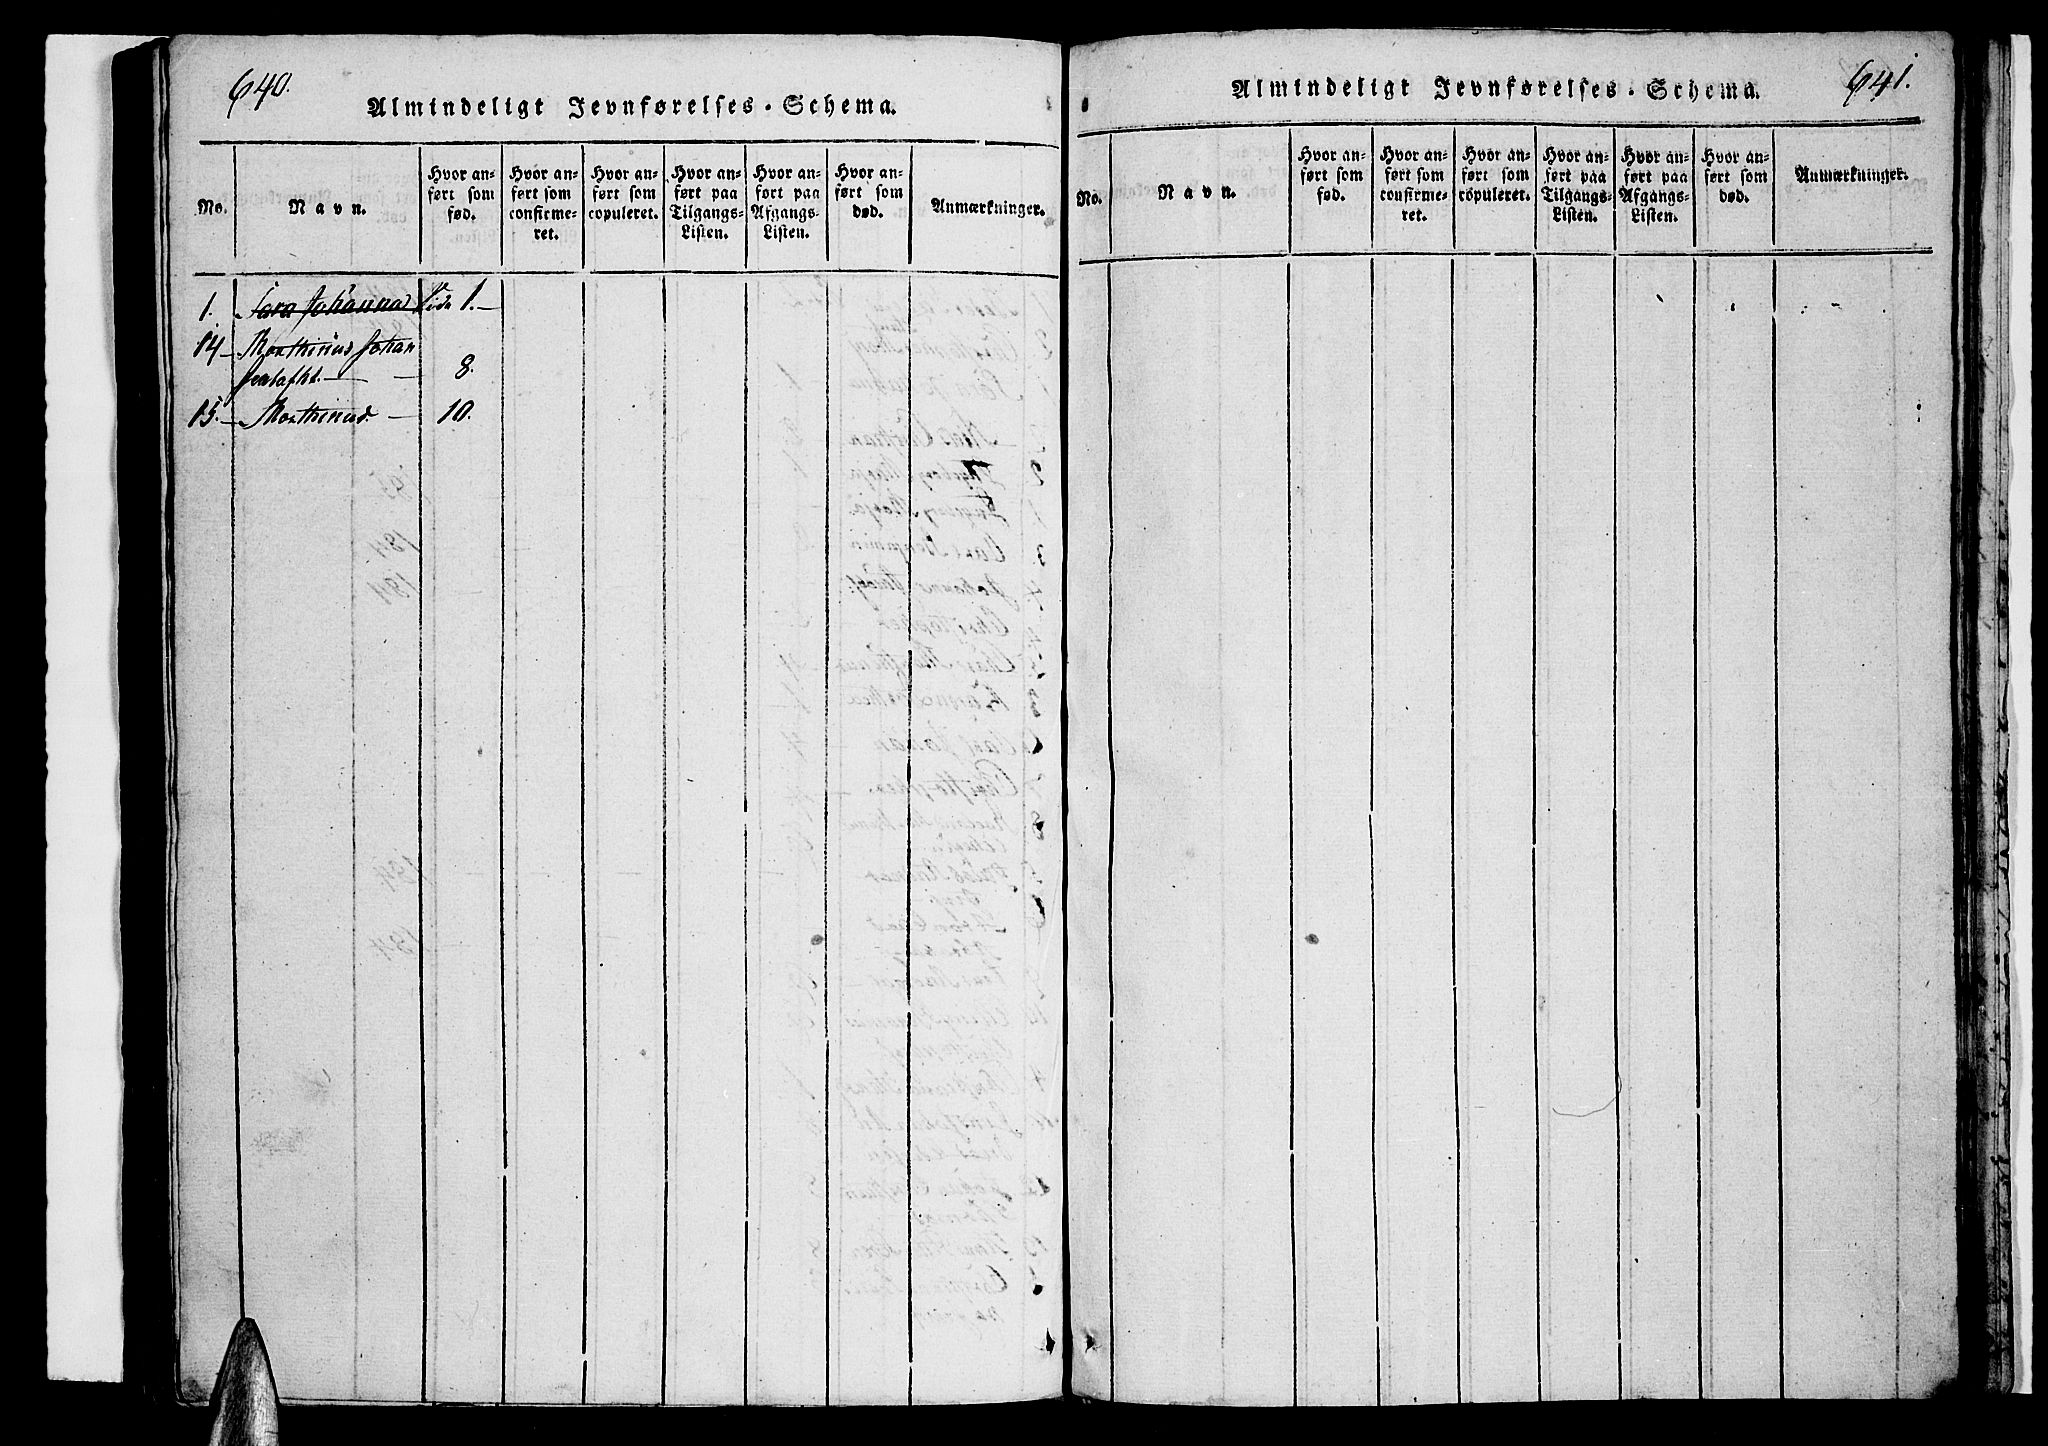 640.
Almindeligt Jevnførelses-Schema.
No.
Navn.
Hvor anført som fød.
Hvor anført som confirmeret.
Hvor anført som copuleret.
Hvor anført paa Tilgangs-Listen.
Hvor anført paa Afgangs-Listen.
Hvor anført som død.
Anmærkninger.
1. Sara Johanna 1.
14. Morthinus Johan
8.
15. Morthinus 10.
641.
Almindeligt Jevnførelses-Schema.
No.
Navn.
Hvor anført som fød.
Hvor anført som confirmeret.
Hvor anført som copuleret.
Hvor anført paa Tilgangs-Listen.
Hvor anført paa Afgangs-Listen.
Hvor anført som død.
Anmærkninger.